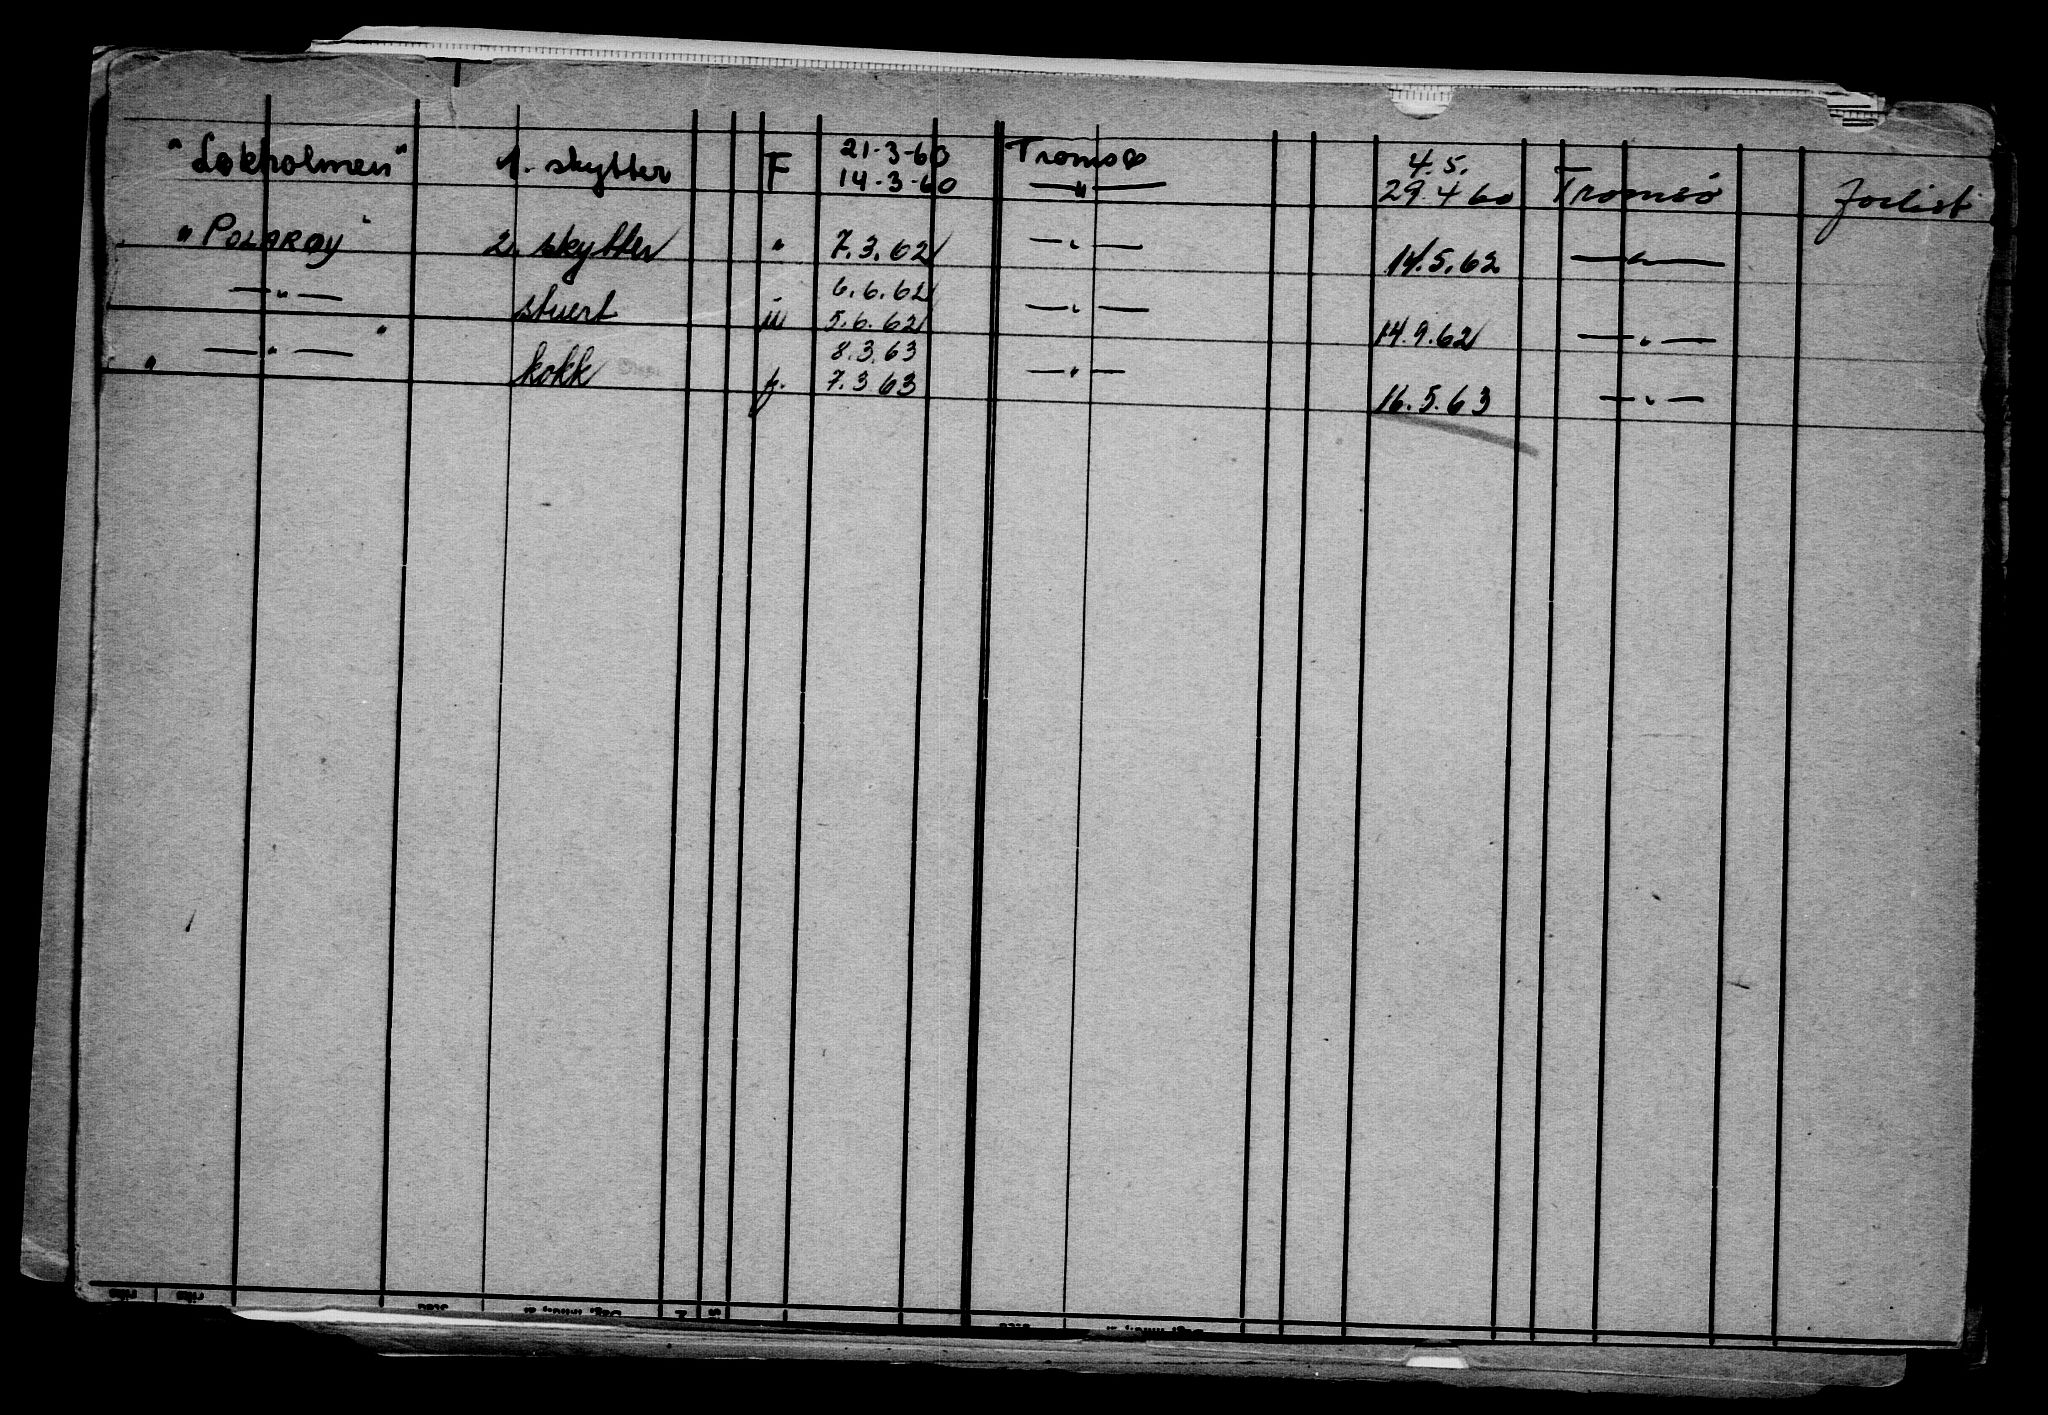 "Løkholmen" 1. skytter F 21-3-60 Tromsø 4.5.
14-3-60 —"— 29.4 60 Tromsö Forlist
"POLARØY" 2. skytter " 7.3.62 —"— 14.5.62 —"—
—"— stuert u 6.6.62
5.6.62 —"— 14.9.62 —"—
" —"— " kokk f. 8.3.63
7.3 63 —"— 16.5.63 —"—